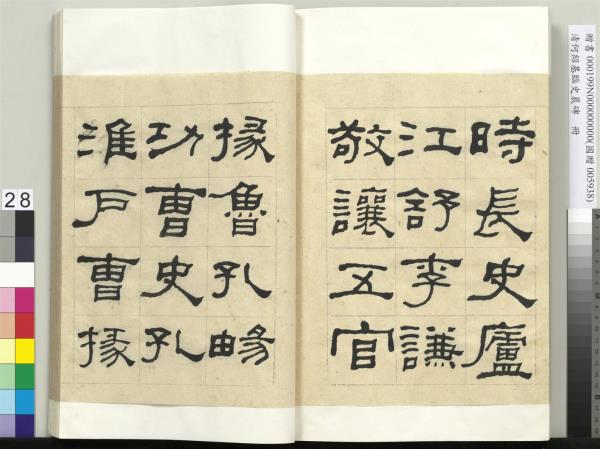 時長史廬
江舒李謙
敬讓五官
掾魯孔暘
功曹史孔
淮戶曹掾
贈書 000199N000000000(國贈 005938)
清何紹基臨史晨碑 冊
28